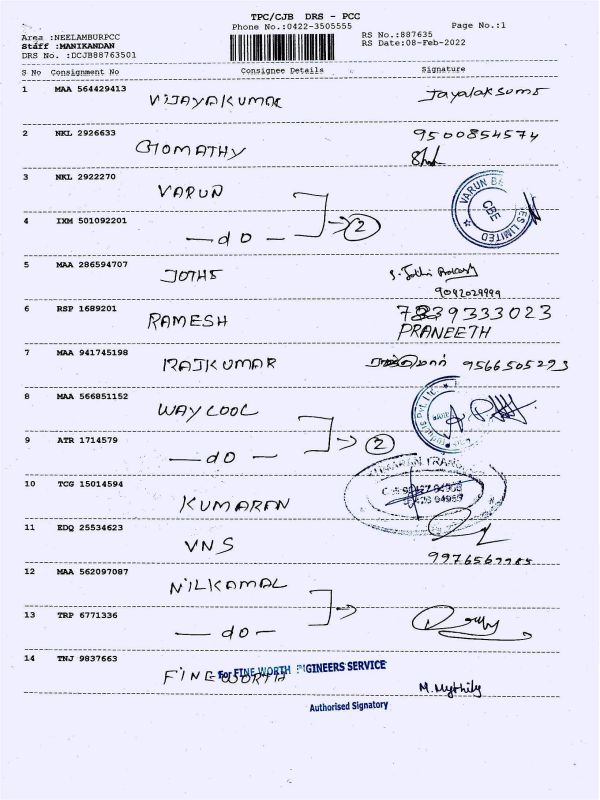 TPC/CJB DRS - PCC
Phone No.:0422-3505555
Page No.:1
Area :NEELAMBURPCC
Staff :MANIKANDAN
DRS No. :DCJB88763501
RS No.:887635
RS Date:08-Feb-2022
S No Consignment No Consignee Details Signature
1 MAA 564429413 VIJAYAKUMAR
2 NKL 2926633 GOMATHY 9500854574
3 NKL 2922270 VARUN
VARUN
LIMITED
4 IXM 501092201 — do — 2
5 MAA 286594707 JOTHI
9092029999
6 RSP 1689201 RAMESH 7339333023
PRANEETH
7 MAA 941745198 RAJKUMAR 9566505293
8 MAA 566851152 WAYCOOL
Pvt. Ltd.
9 ATR 1714579 — do — 2
10 TCG 15014594 KUMARAN
11 EDQ 25534623 VNS
12 MAA 562097087 NILKAMAL
13 TRP 6771336 — do —
14 TNJ 9837663 FINE WORTH
For FINE WORTH ENGINEERS SERVICE
M. Mythily
Authorised Signatory